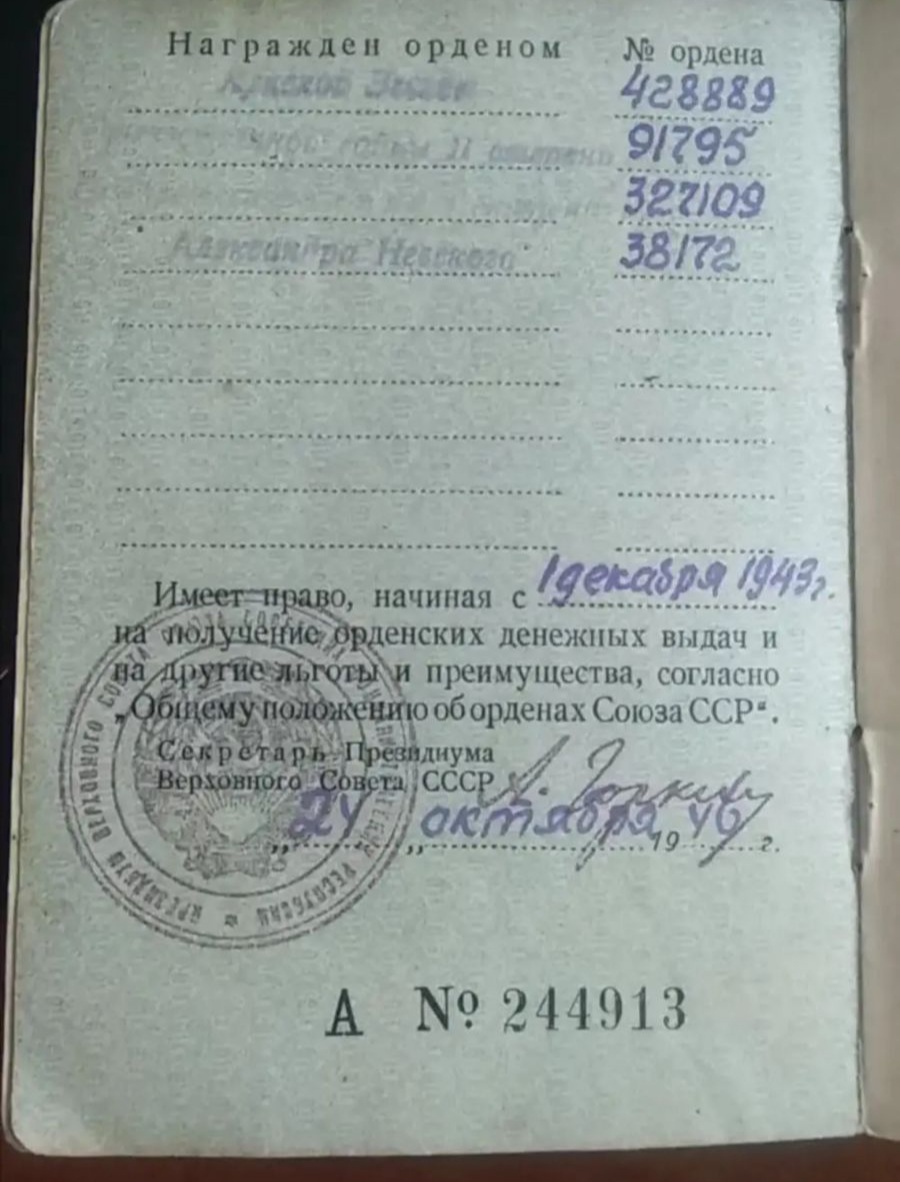 Награжден орденом № ордена
428889
войны II 91795
327109
Александра Невского 38172
Имеет право, начиная с 1 декабря 1943 г.
на получение орденских денежных выдач и
на другие льготы и преимущества, согласно
„Общему положению об орденах Союза ССР“.
Секретарь Президиума
Верховного Совета СССР А. Горкин
„24„ октября 1946 г.
А № 244913